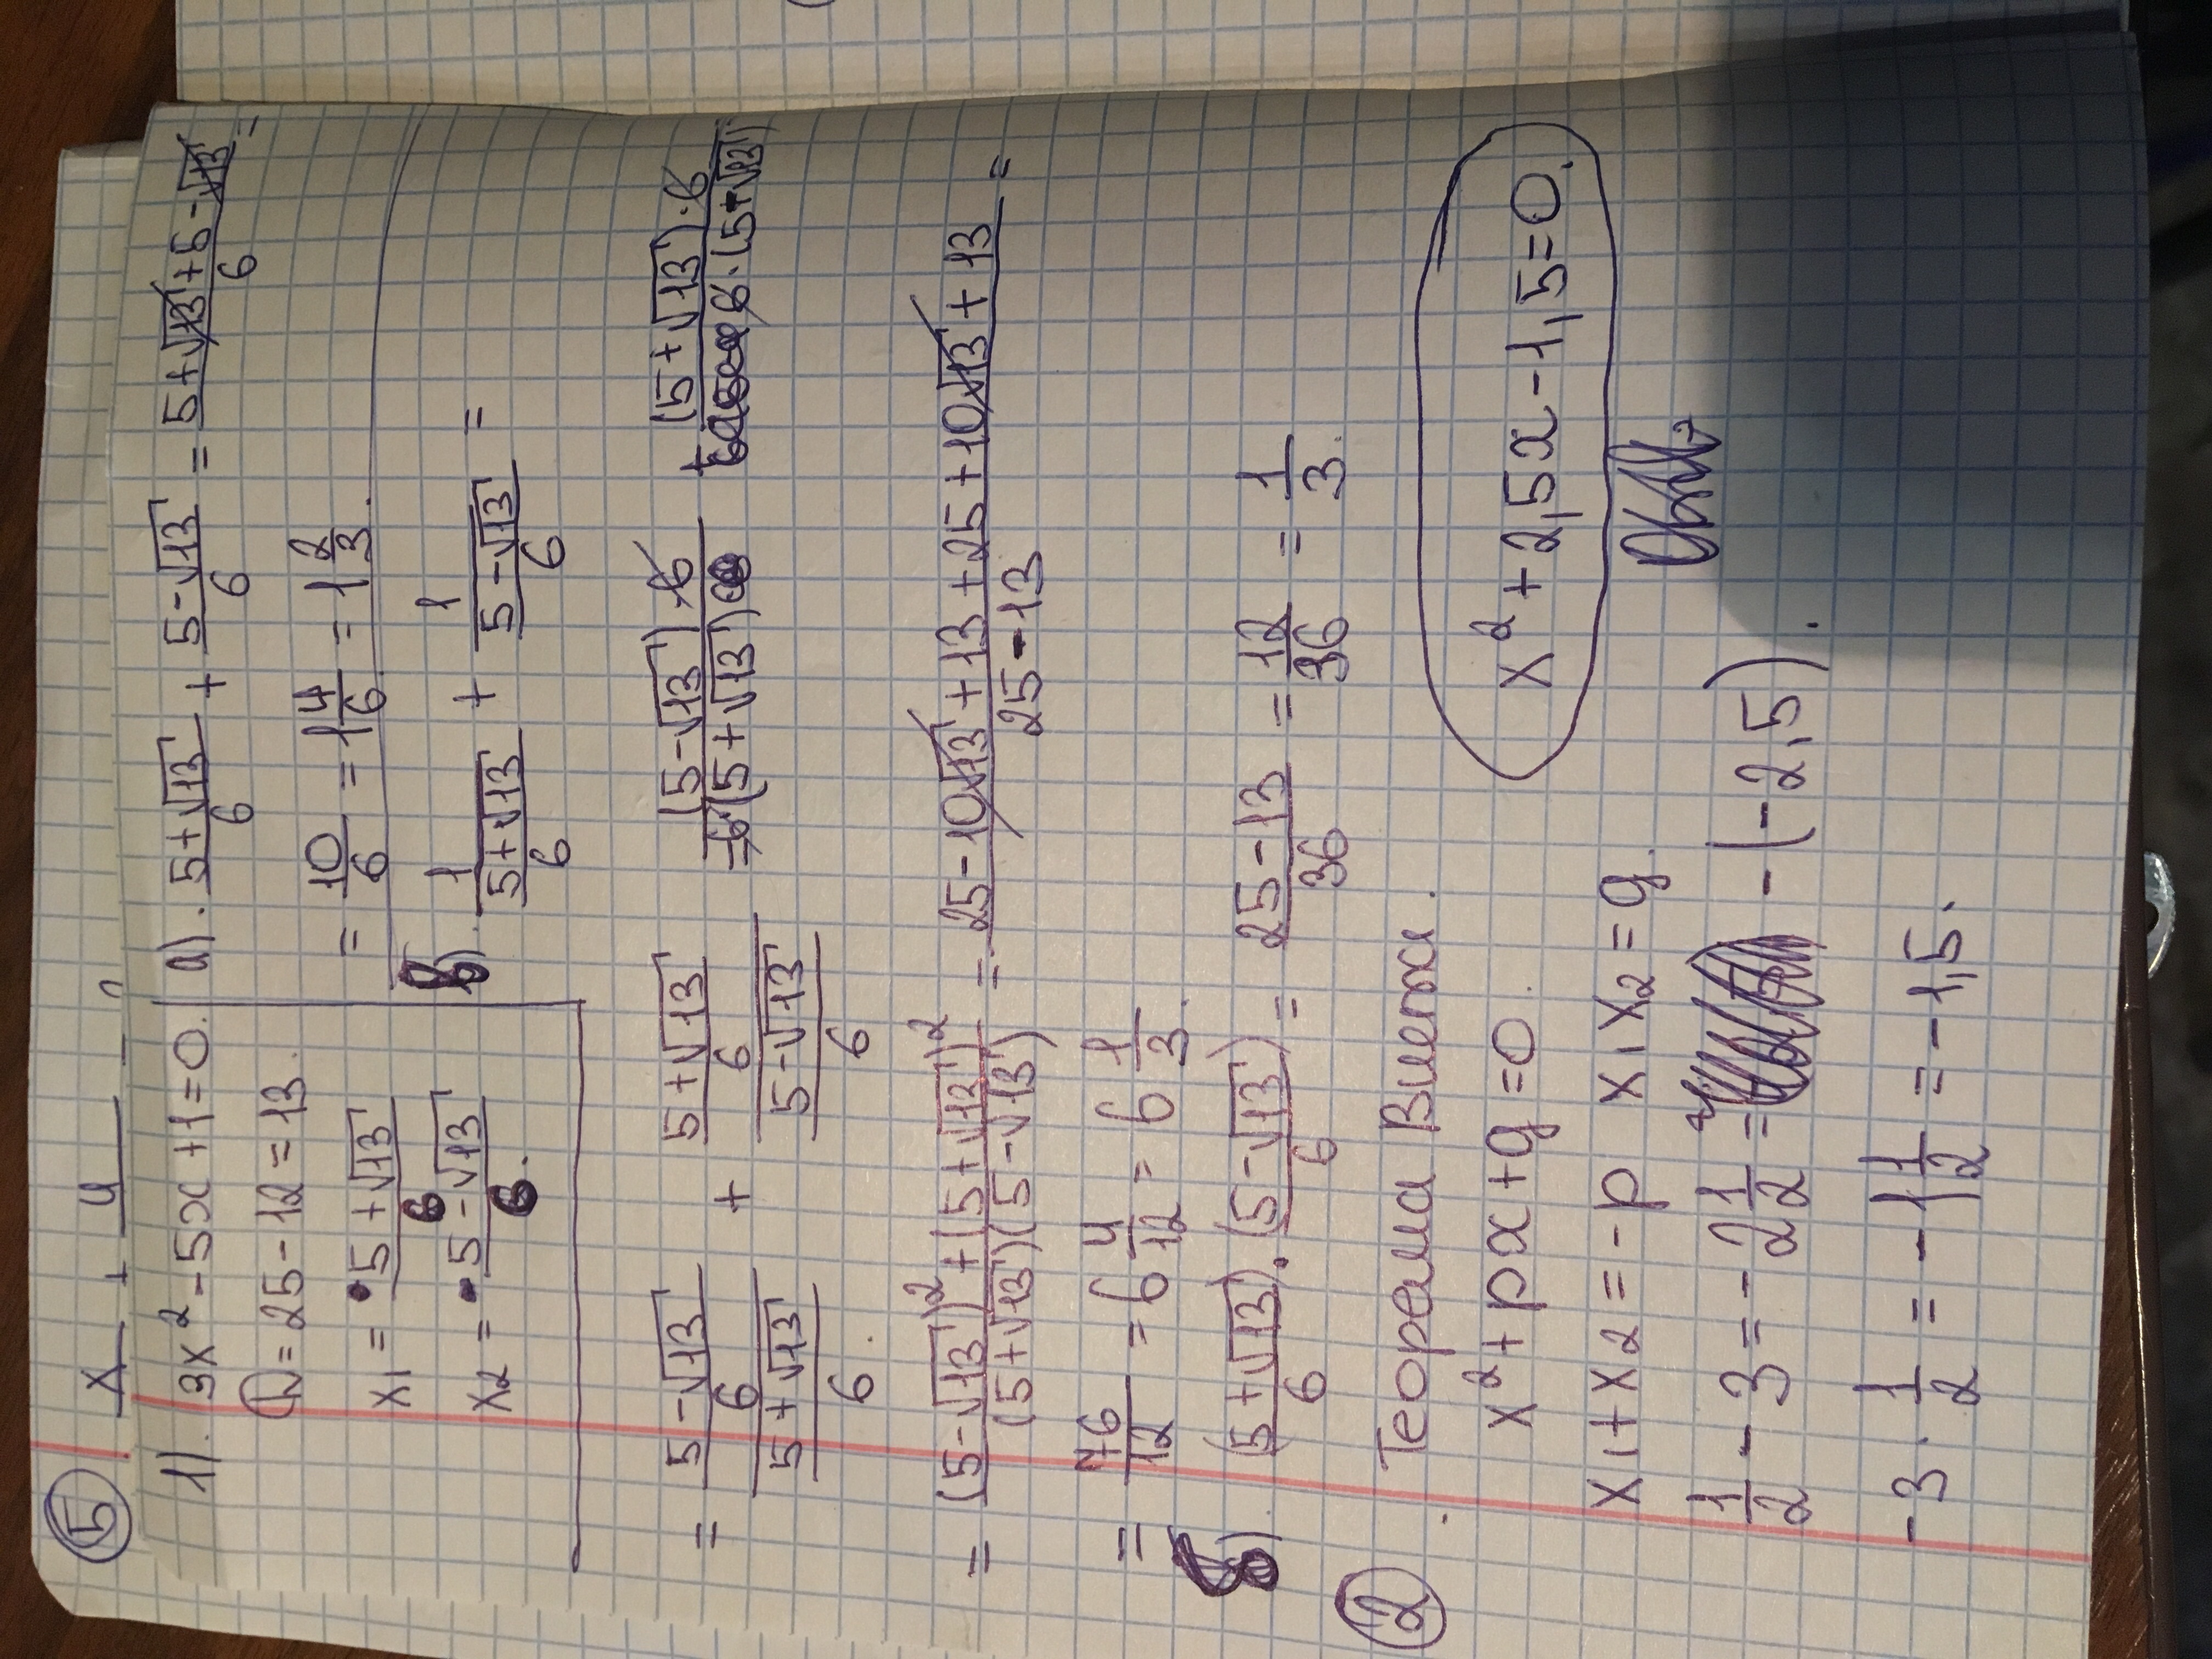 ⑤ x + 4
1). 3x² - 5x + 1 = 0.
D = 25 - 12 = 13.
x₁ = (5+√13)/6
x₂ = (5-√13)/6.
а). (5+√13)/6 + (5-√13)/6 = (5+√13+5-√13)/6 =
= 10/6 = 1 4/6 = 1 2/3.
1/((5+√13)/6) + 1/((5-√13)/6) =
= ((5-√13)/6)/((5+√13)/6) + ((5+√13)/6)/((5-√13)/6) = ((5-√13)·6)/(6·(5+√13)) + ((5+√13)·6)/(6·(5-√13))
= ((5-√13)²+(5+√13)²)/((5+√13)(5-√13)) = (25-10√13+13+25+10√13+13)/(25-13) =
= 76/12 = 6 4/12 = 6 1/3.
(5+√13)/6 · (5-√13)/6 = (25-13)/36 = 12/36 = 1/3.
② Теорема Виета.
x² + px + q = 0.
x² + 2,5x - 1,5 = 0.
x₁ + x₂ = - p x₁x₂ = q.
1/2 - 3 = - 2 1/2 = - (-2,5).
-3 · 1/2 = - 1 1/2 = - 1,5.